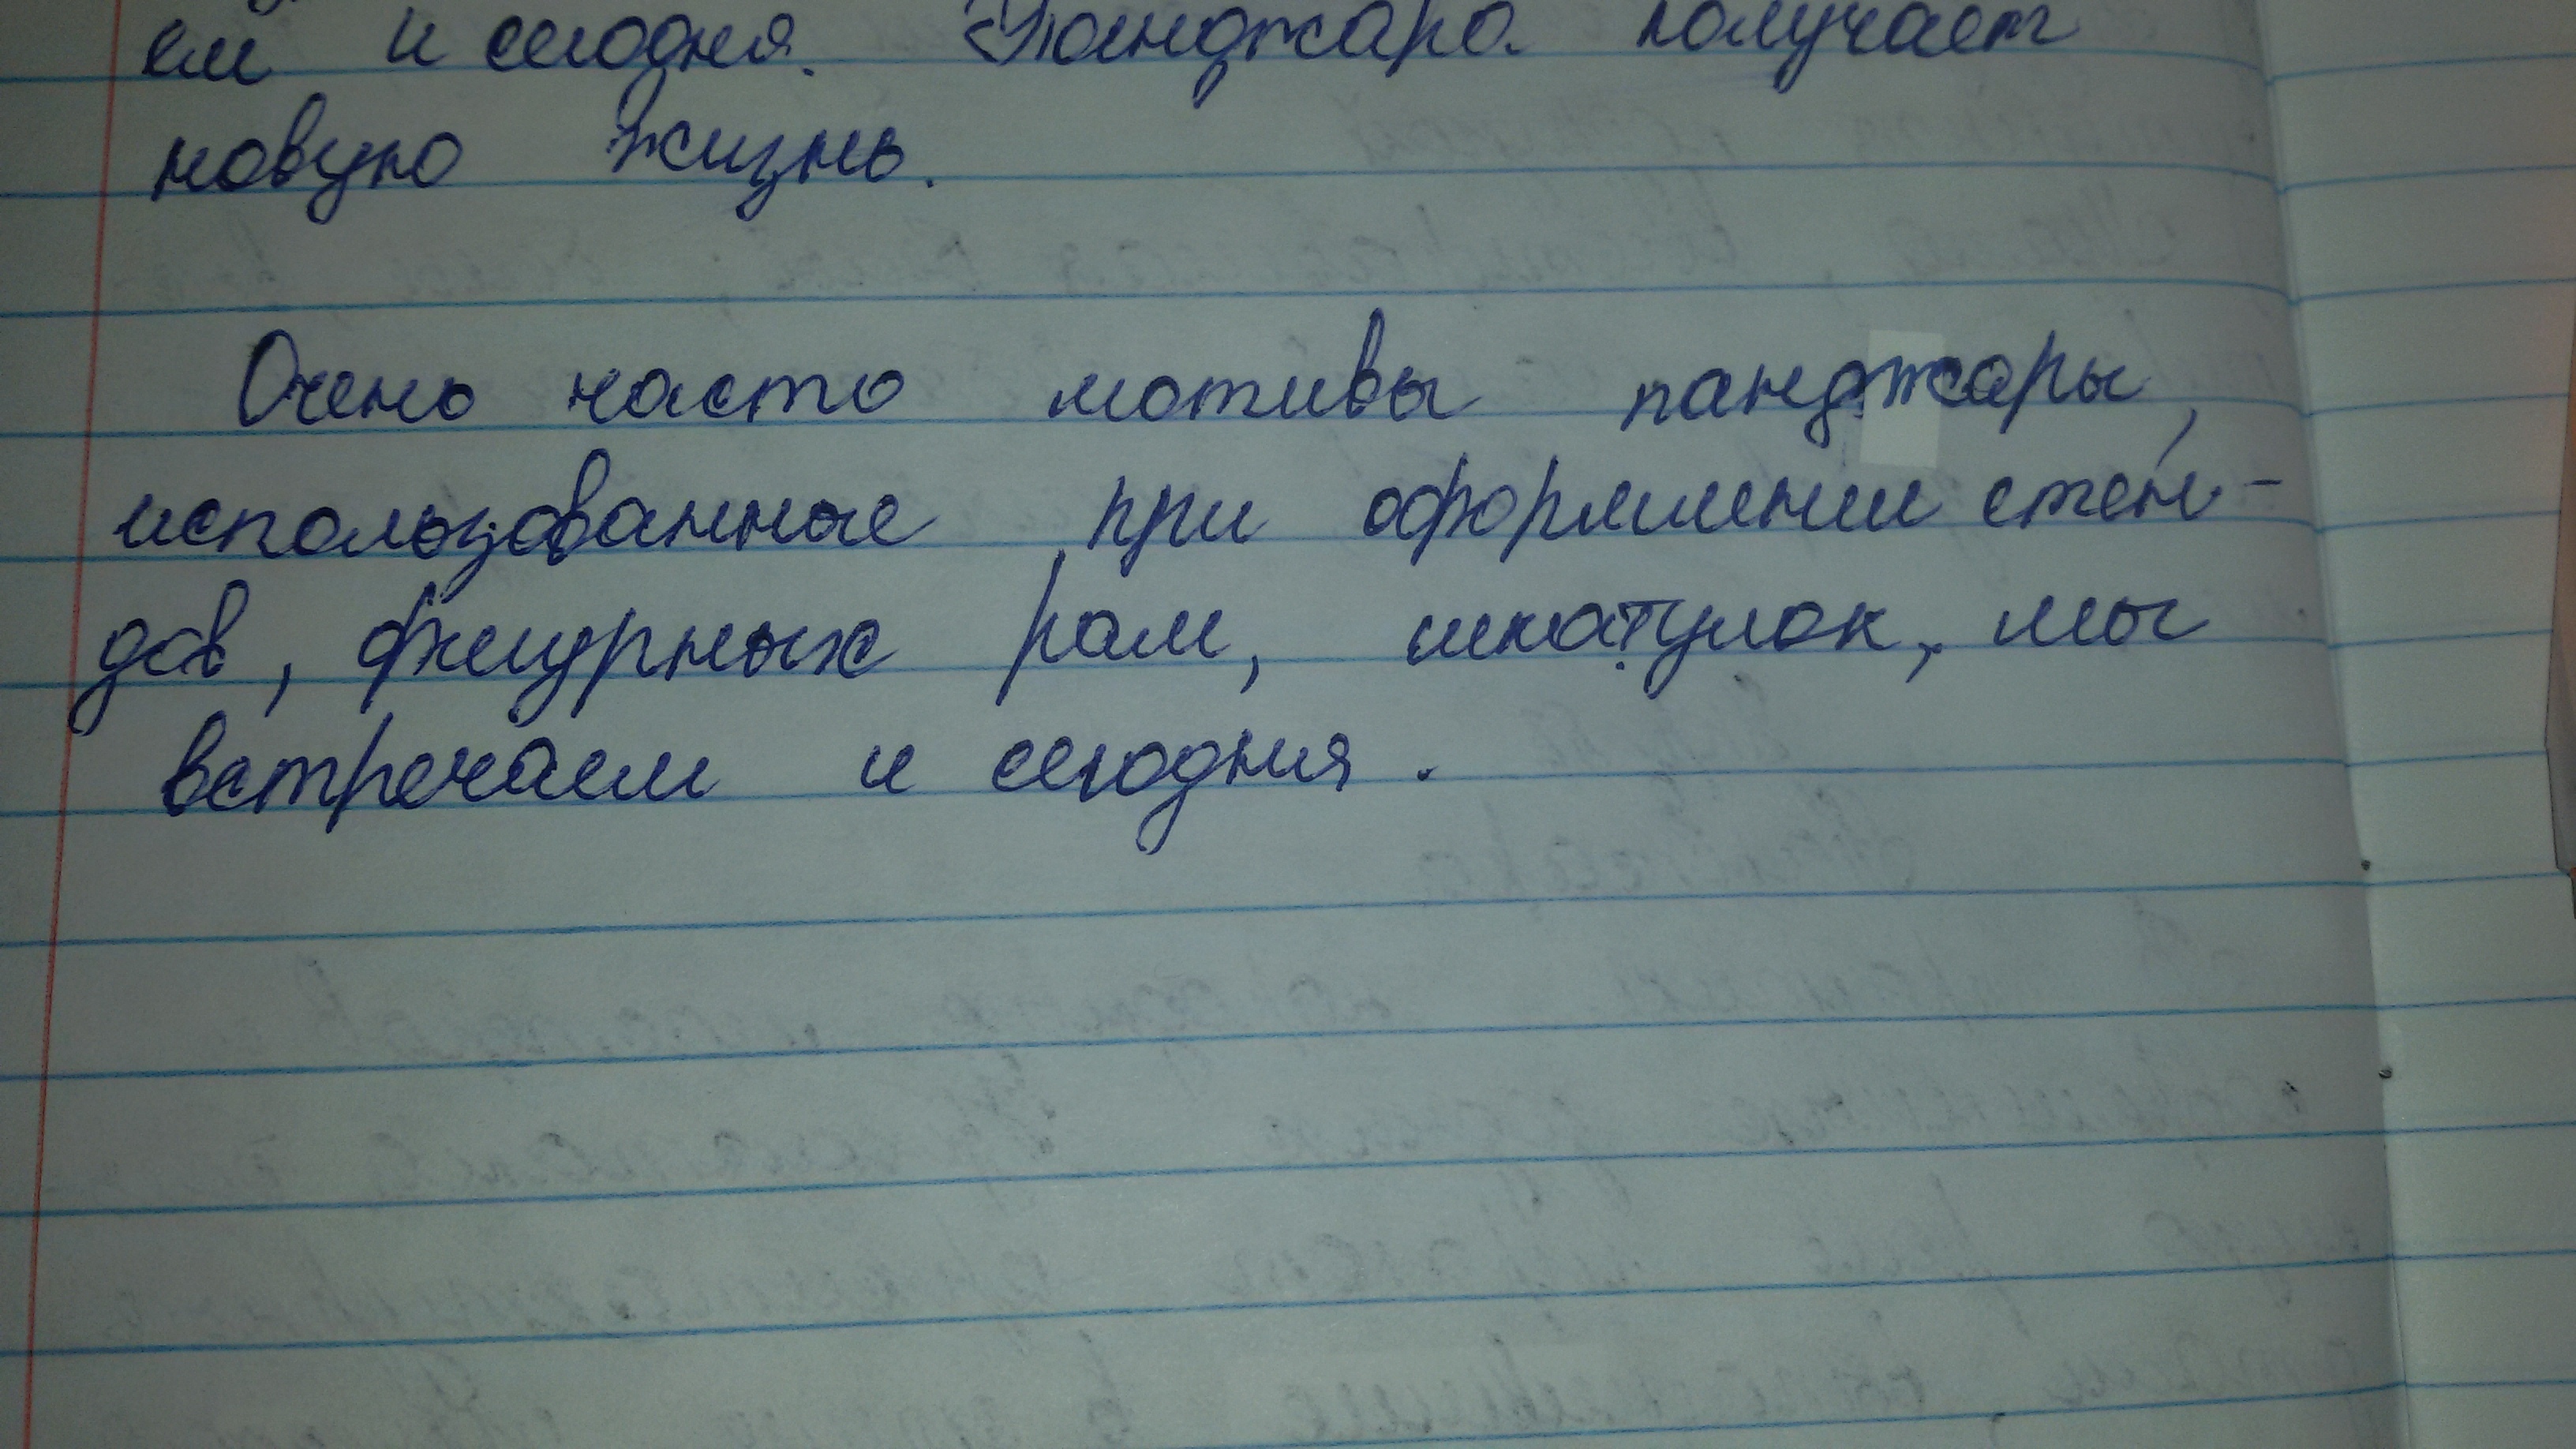 ем и сегодня. Панджара получает
новую жизнь.
Очень часто мотивы панджары,
использованные при оформлении стен-
дов, фигурных рам, шкатулок, мы
встречаем и сегодня.